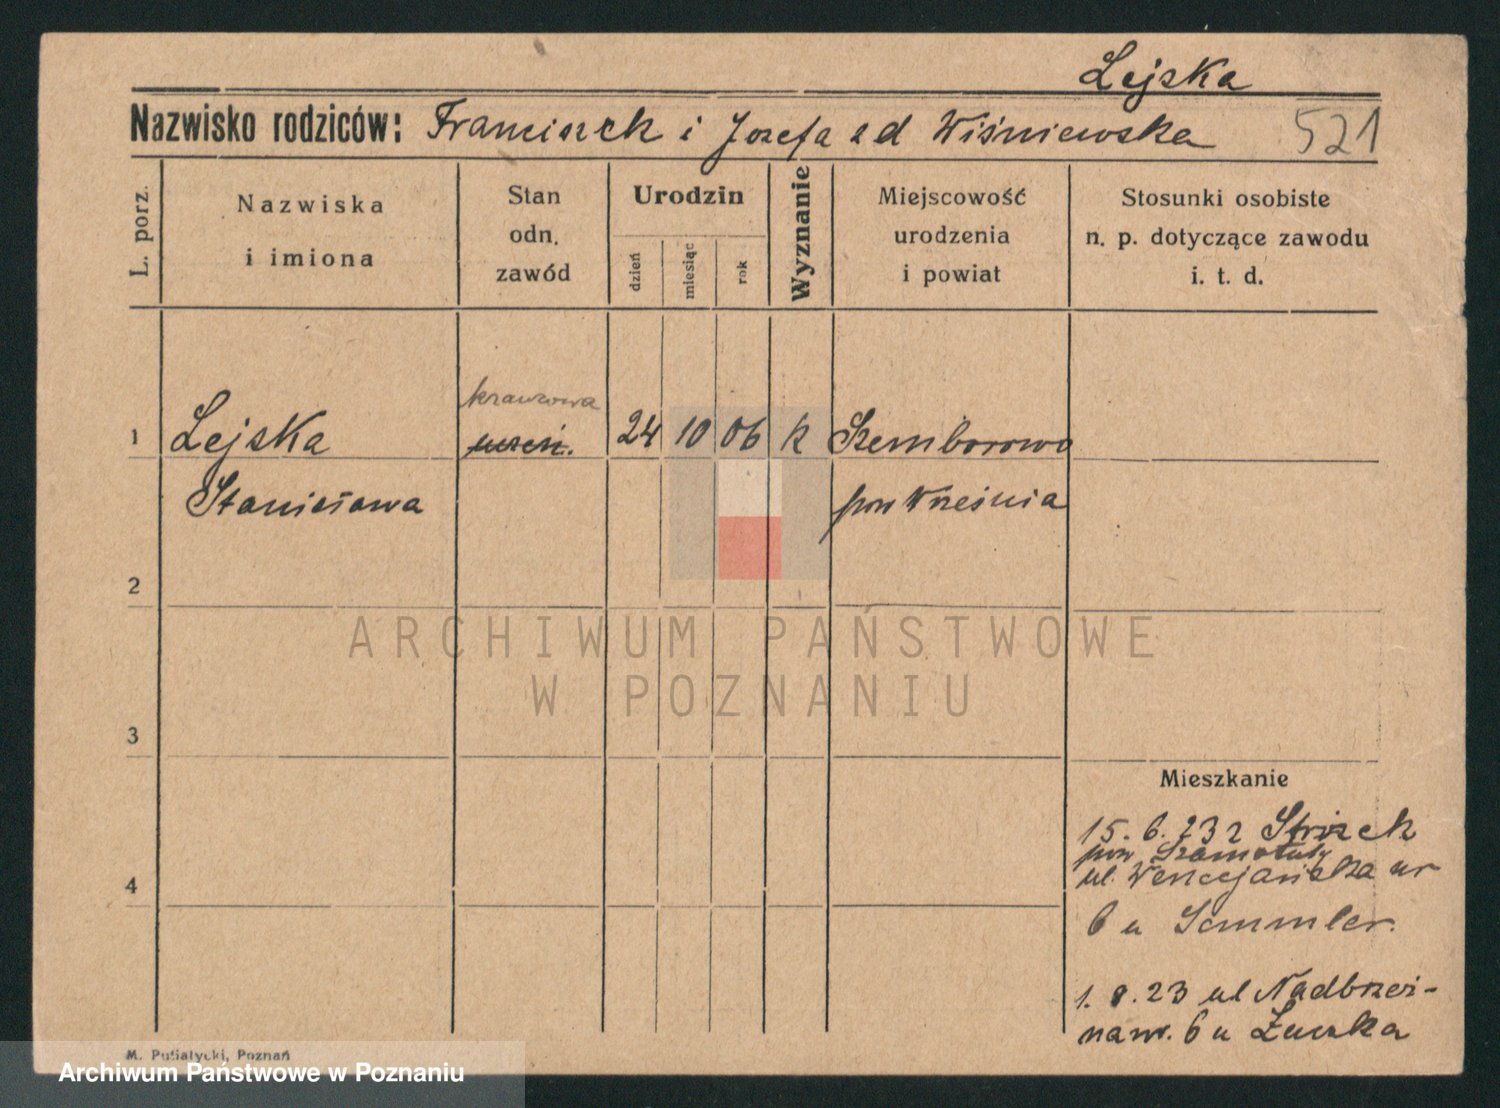 Lejska
Nazwisko rodziców: Franciszek i Jozefa z d Wiśniewska 521
L. porz.
Nazwiska
i imiona
Stan
odn.
zawód
Urodzin
dzień
miesiąc
rok
Wyznanie
Miejscowość
urodzenia
i powiat
Stosunki osobiste
n. p. dotyczące zawodu
i. t. d.
krawcowa
1 Lejska uczeń. 24 10 06 k Szemborowo
Stanisława pow Września
2
3
4
Mieszkanie
15. 6. 23 z
pow Szamotuły
ul. Wenecjańska nr
6 u Semmler.
1. 8. 23 ul Nadbrzeż-
na nr. 6 u
M. Putiatycki, Poznań
ARCHIWUM PAŃSTWOWE
W POZNANIU
Archiwum Państwowe w Poznaniu